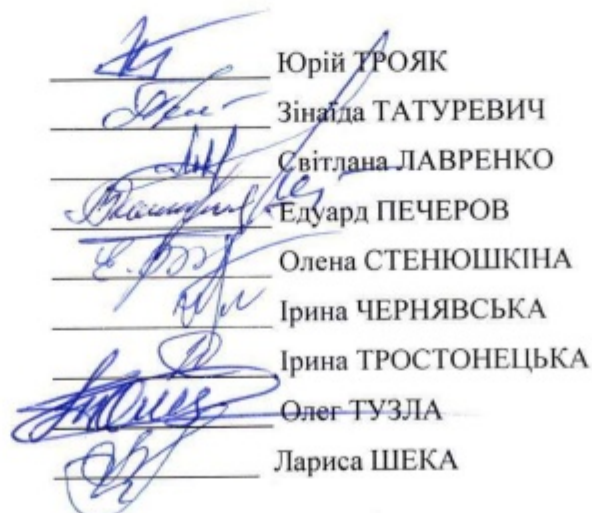 Юрій ТРОЯК
Зінаїда ТАТУРЕВИЧ
Світлана ЛАВРЕНКО
Едуард ПЕЧЕРОВ
Олена СТЕНЮШКІНА
Ірина ЧЕРНЯВСЬКА
Ірина ТРОСТОНЕЦЬКА
Олег ТУЗЛА
Лариса ШЕКА